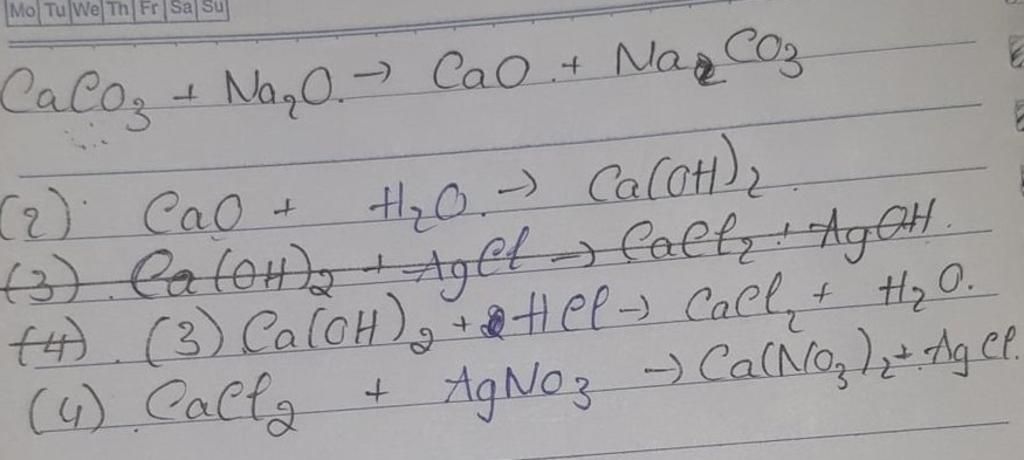 Mo Tu We Th Fr Sa Su
CaCO₃ + Na₂O. → CaO. + Na₂CO₃
(2) CaO + H₂O. → Ca(OH)₂.
(3). Ca(OH)₂ + AgCl → CaCl₂ + AgOH.
(4). (3) Ca(OH)₂ + HCl → CaCl₂ + H₂O.
(4) CaCl₂ + AgNO₃ → Ca(NO₃)₂ + AgCl.